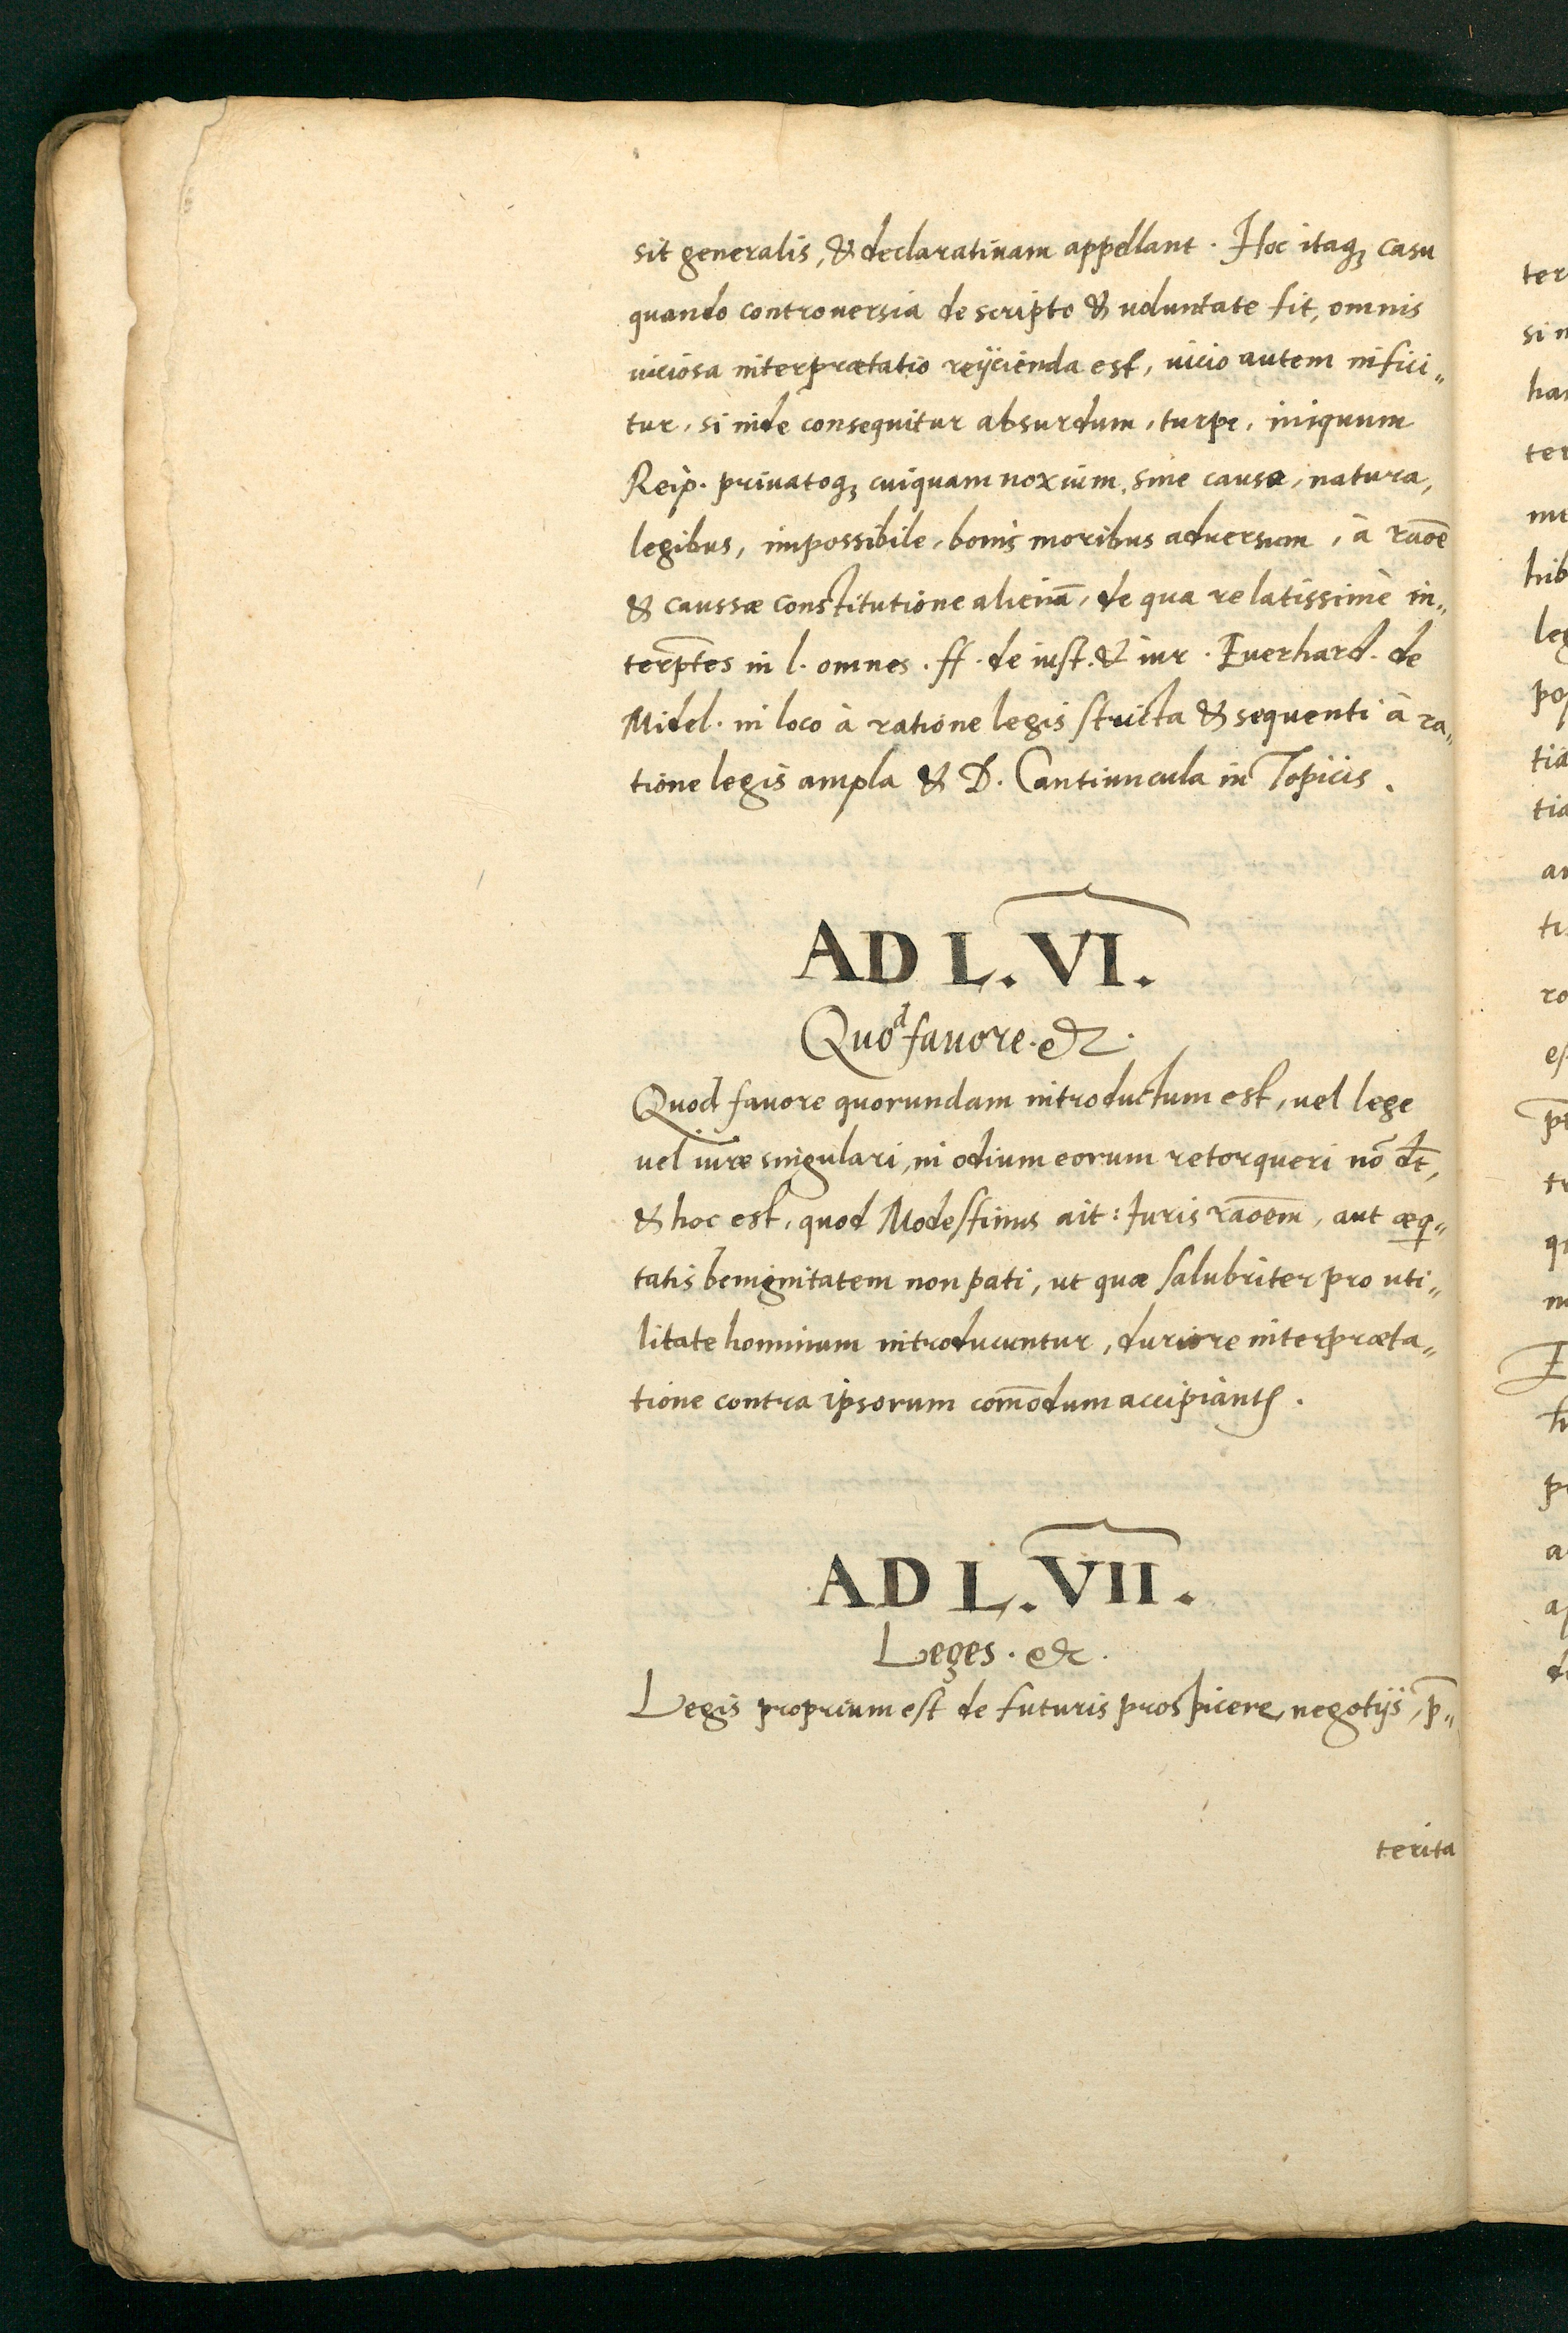 sit generalis, & declaratiuam appellant. Hoc itaq; casu
quando controuersia de scripto & uoluntate fit, omnis
uiciosa interprætatio reijcienda est, uicio autem infici„
tur, si inde consequitur absurdum, turpe, iniquum
Reip. priuatoq; cuiquam noxium, sine causa, natura,
legibus, impossibile, bonis moribus aduersum, à raōē
& caussæ constitutione alienā, de qua re latissimè in„
terp̄tes in l. omnes. ff. de iust. & iur. Euerhard. de
Midel. in loco à ratione legis stricta & sequenti à ra„
tione legis ampla & D. Cantiuncula in Topicis.
AD L. VI.
Quod fauore. &c.
Quod fauore quorundam introductum est, uel lege
uel iure singulari, in odium eorum retorqueri nō dt̄,
& hoc est, quod Modestinus ait: Iuris raōem, aut æq„
tatis benignitatem non pati, ut quæ salubriter pro uti„
litate hominum introducuntur, duriore interpræta„
tione contra ipsorum com̄odum accipiant&.
AD L. VII.
Leges. &c.
Legis proprium est de futuris prospicere negotijs, p̄„
terita
ter
si
ha
ter
hib
leg
po
tia
tia
ti
ro
es
p̄
tr
q
E
h
p
a
a
d